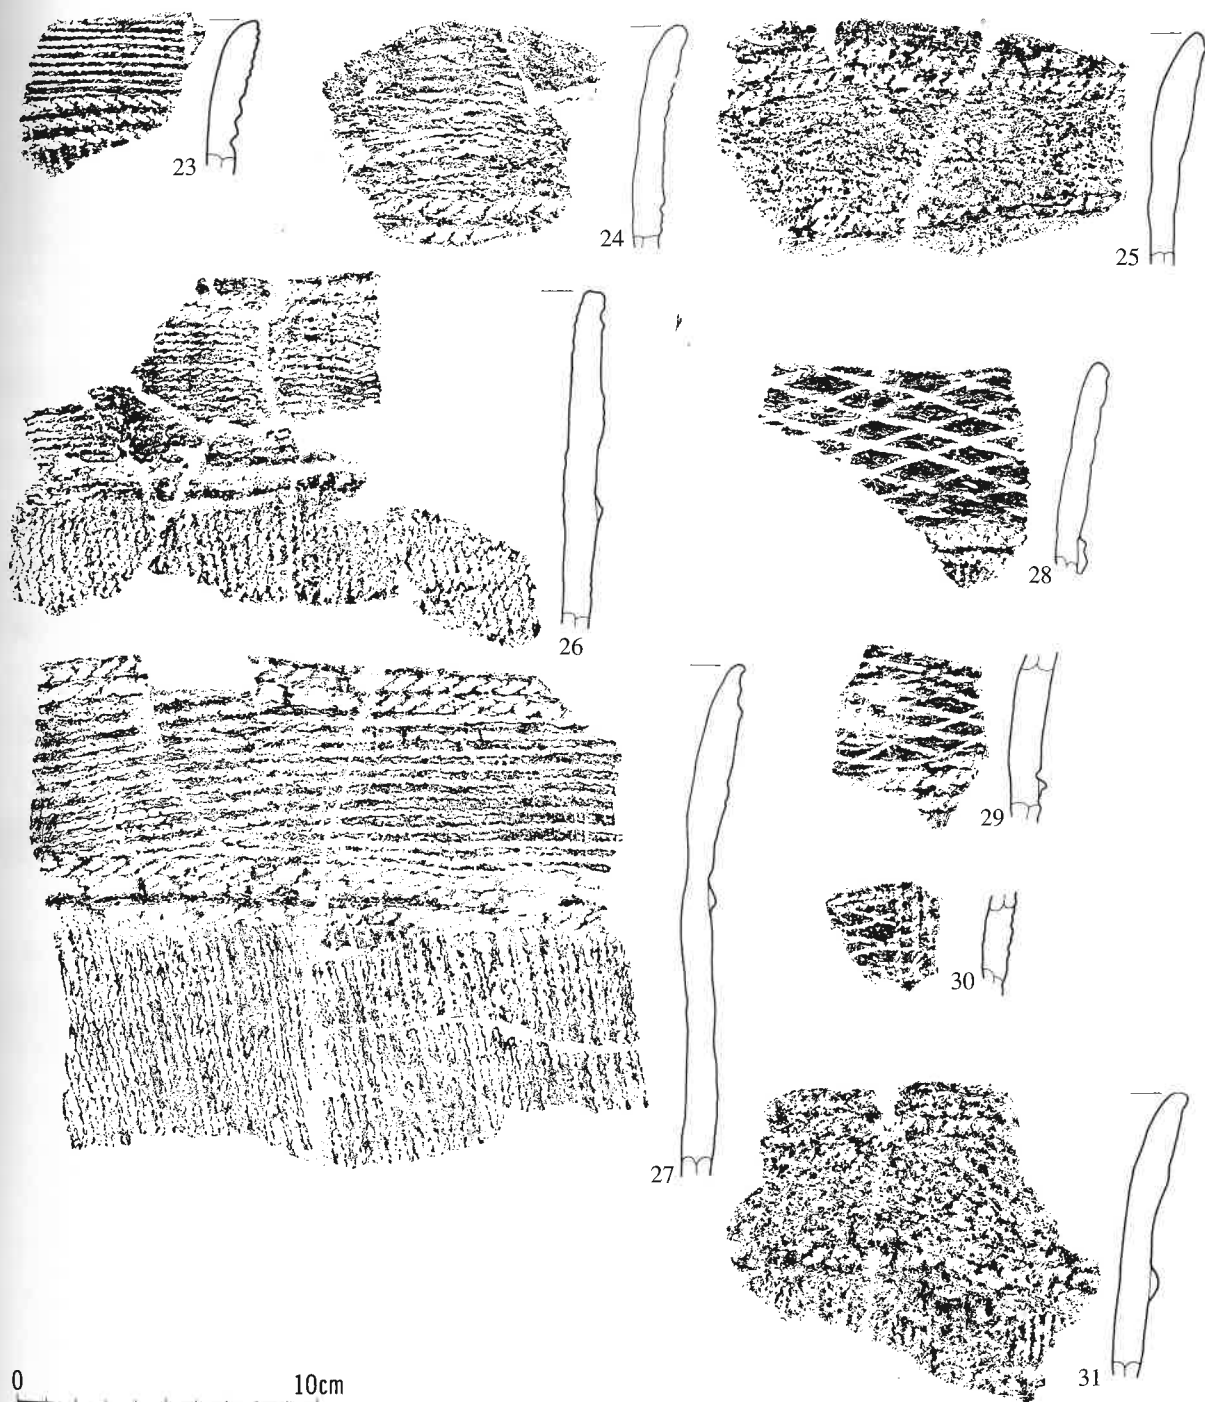 23
24
25
26
28
29
27
30
31
0 10cm